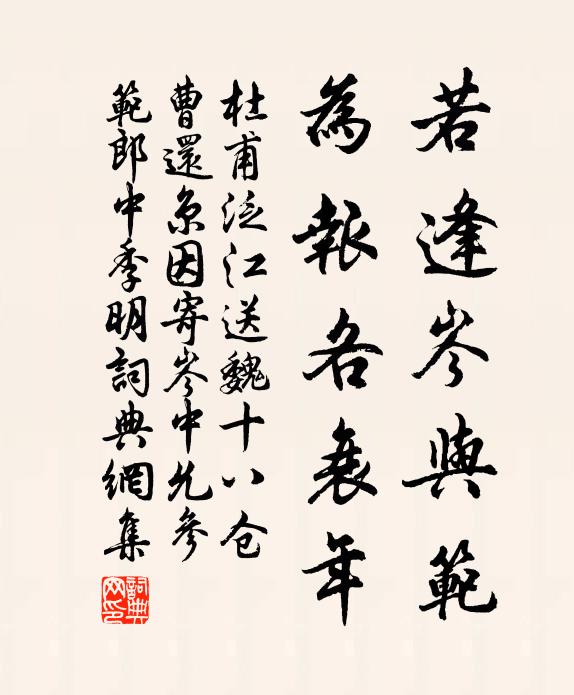 若逢岑與範
為報各衰年
杜甫泛江送魏十八仓
曹還京因寄岑中允參
範郎中季明詞典網集
詞典
网印